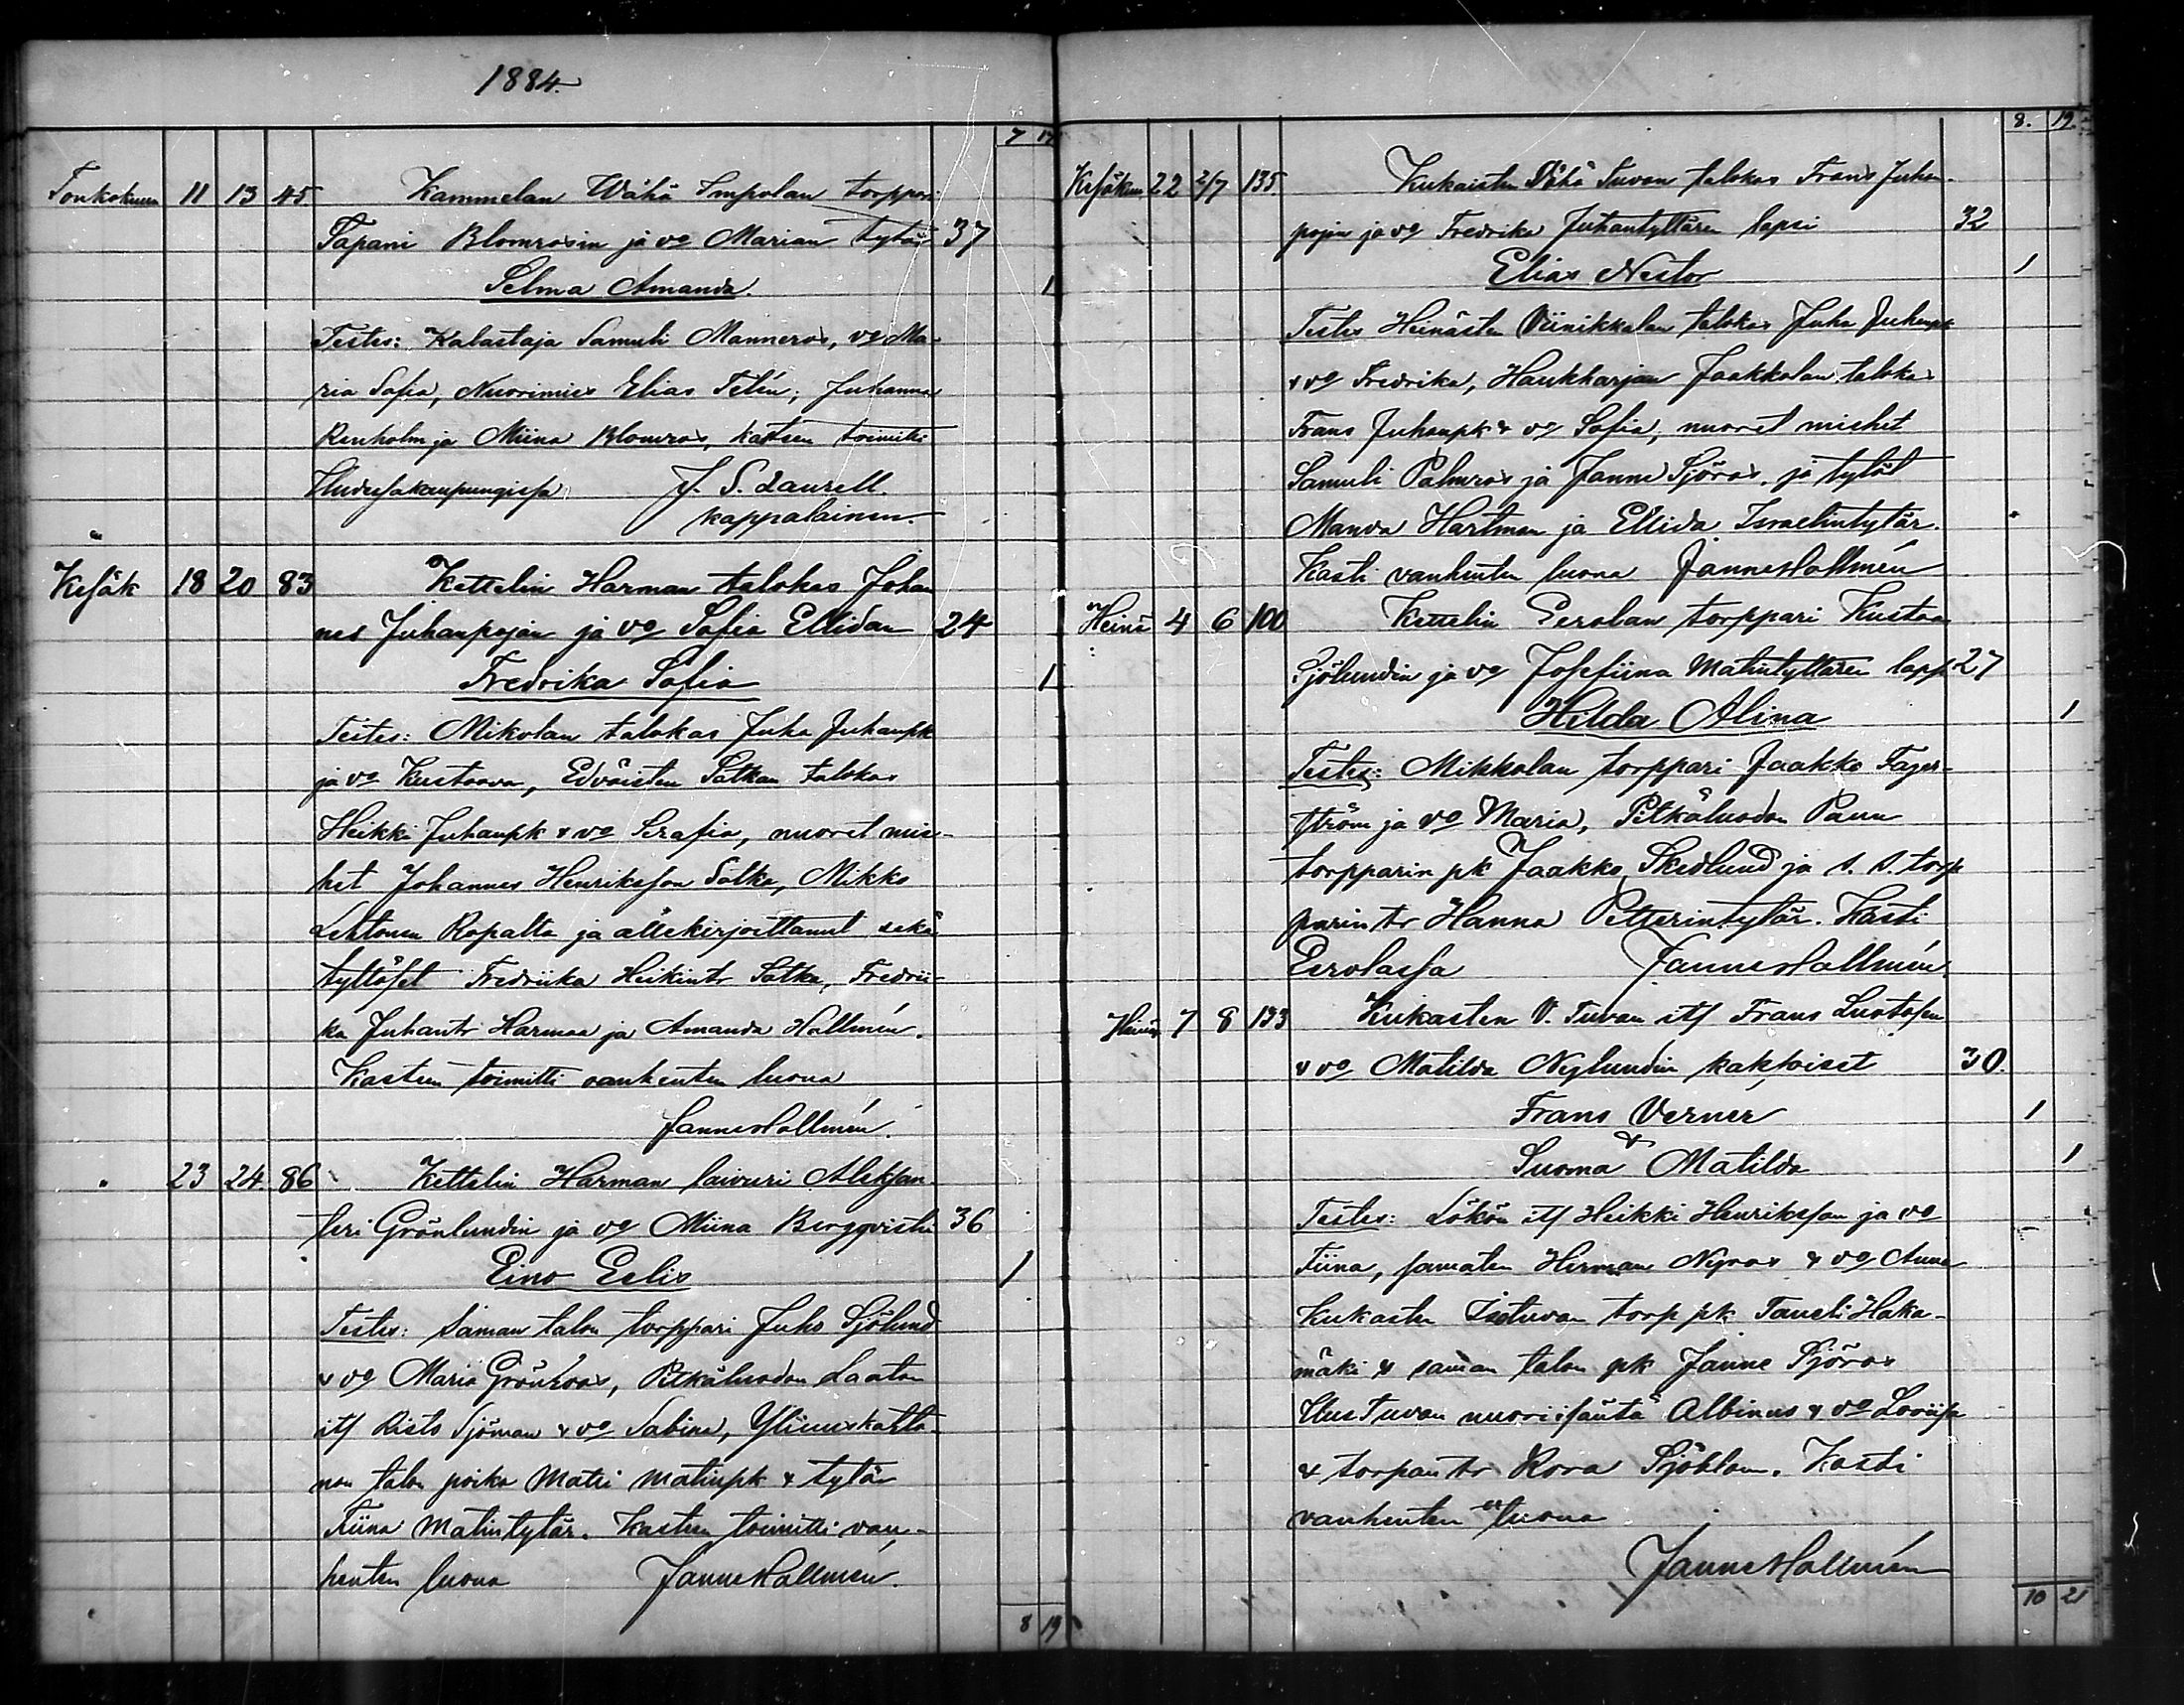 1884.
7 17
Toukokuun 11 13 45 Kammelan Wähä Impolan torppari
Tapani Blomrosin ja vo Marian tytär 37
Selma Amanda. 1
Testes: Kalastaja Samuli Manneros, vo Ma-
ria Sofia, Nuorimies Elias Telén, Juhanna
Renholm ja Miina Blomros, kasteen toimitti
Uudessakaupungissa J. S. Laurell.
kappalainen.
Kesäk 18 20 83 Kettelin Harman talokas Johan
nes Juhanpojan ja vo Sofia Ellidan 24
Fredrika Sofia 1
Testes: Mikolan talokas Juha Juhanpk
ja vo Kustaava, Edväisten Satkan talokas
Heikki Juhanpk & vo Serafia, nuoret mie-
het Johannes Henriksson Satka, Mikko
Lehtonen Ropalta ja allekirjoittanut sekä
tyttöset Fredriika Heikintr Satka, Fredrii-
ka Juhantr Harmaa ja Amanda Hallmén.
Kasteen toimitti vanhenten luona
Janne Hallmén.
" 23 24 86 Kettelin Harman laivuri Aleksan-
teri Grönlundin ja vo Miina Bergqvistin 36
Eino Eelis 1
Testes: Saman talon torppari Juho Sjölund
& vo Maria Grönroos, Pitkäluodon Laaton
itf Risto Sjöman & vo Sabina,
non talon poika Matti Matinpk & tytär
Tiina Matintytär. Kasteen toimitti van-
henten luona Janne Hallmén.
8 19
8. 19.
Kesäkuu 22 2/7 135 Kukaisten Vähä Tuvan talokas Frans Juhan-
pojan ja vo Fredrika Juhantyttären lapsi 32
Elias Nestor 1
Testes Heinästen Viinikkalan talokas Juha Juhanpk
& vo Fredrika, Haukkarjan Jaakkolan talokas
Frans Juhanpk & vo Sofia, nuoret miehet
Samuli Palmros ja Janne Sjöros, ja tytöt
Manda Hartman ja Ellida Israelintytär.
Kasti vanhenten luona Janne Hallmén
Heinä 4 6 100 Kettelin Eerolan torppari Kustaa
Sjölundin ja vo Josefiina Matintyttären laps 27
Hilda Alina 1
Testes: Mikkolan torppari Jaakko Fager-
ström ja vo Maria, Pitkäluodon Paun
torpparin pk Jaakko Skedlund ja s. s. torp
parin tr Hanna Petterintytär. Kasti
Eerolassa Janne Hallmén.
Heinä 7 8 133 Kukasten V. Tuvan itf Frans
& vo Matilda Nylundin kaksoiset 30.
Frans Verner 1
&
Suoma Matilda 1
Testes: Lökön itf Heikki Henriksson ja vo
Tiina, samaten Herman Nyroos & vo Anna
Kukasten Isotuvan torp pk Taneli Haka-
mäki & saman talon pk Janne Sjöros
UusTuvan nuori isäntä Albinus & vo Loviisa
& torpan tr Rosa Sjöblom. Kasti
vanhenten luona
Janne Hallmén
10 21